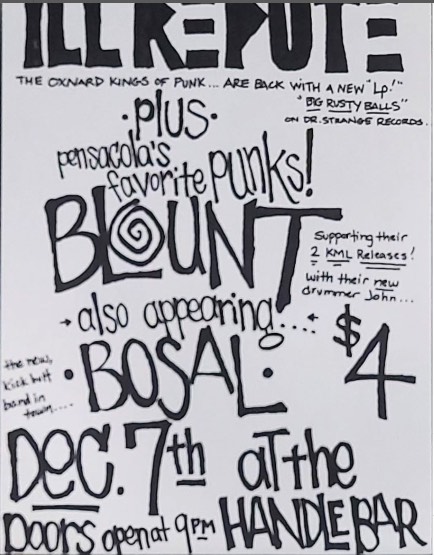 ILL REPUTE
THE OXNARD KINGS OF PUNK... ARE BACK WITH A NEW "Lp!"
"BIG RUSTY BALLS"
ON DR. STRANGE RECORDS.
·plus·
pensacola's
favorite punks!
BLOUNT
Supporting their
2 KML Releases!
with their new
drummer John...
also appearing....
$4
the new,
kick butt
band in
town....
·BOSAL·
DEC. 7th at the
Doors open at 9PM HANDLEBAR